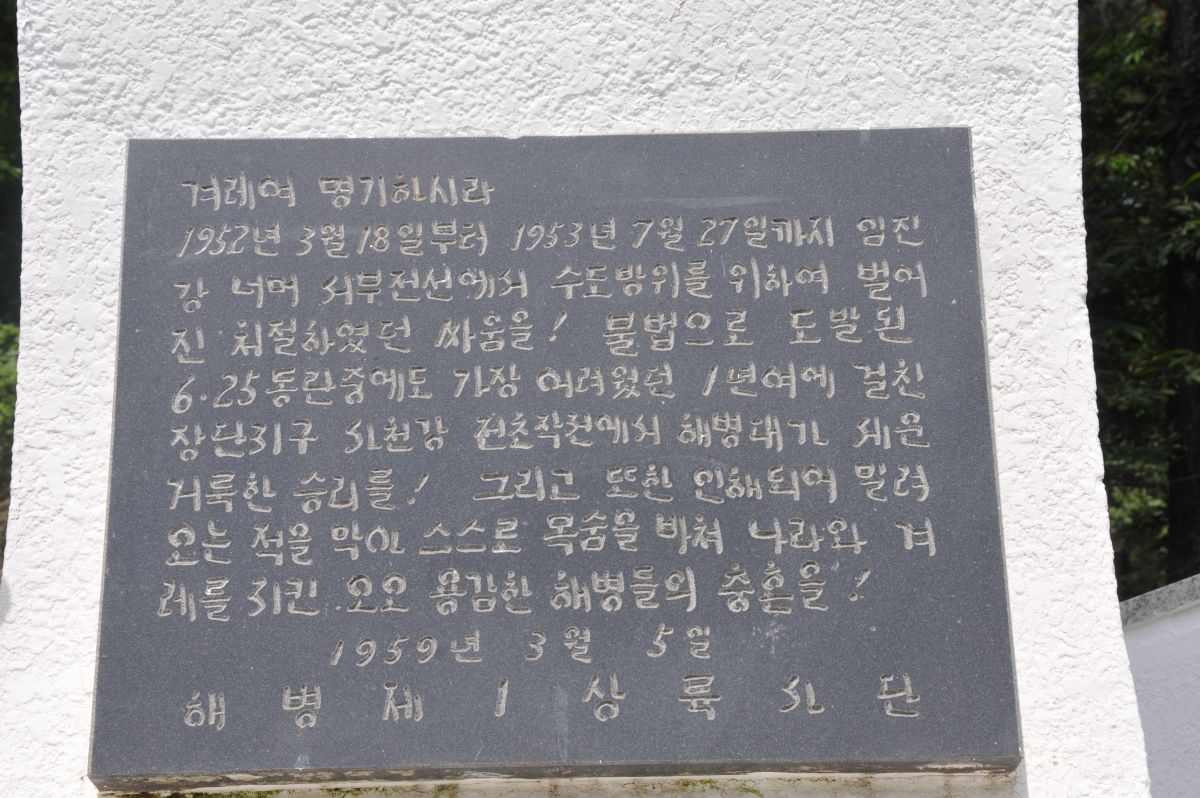 겨레여 명기하시라
1952년 3월 18일부터 1953년 7월 27일까지 임진
강 너머 서부전선에서 수도방위를 위하여 벌어
진 처절하였던 싸움을! 불법으로 도발된
6·25동란중에도 가장 어려웠던 1년여에 걸친
장단지구 사천강 전초작전에서 해병대가 세운
거룩한 승리를! 그리고 또한 인해되어 밀려
오는 적을 막아 스스로 목숨을 바쳐 나라와 겨
레를 지킨 오오 용감한 해병들의 충혼을!
1959년 3월 5일
해병제1상륙사단